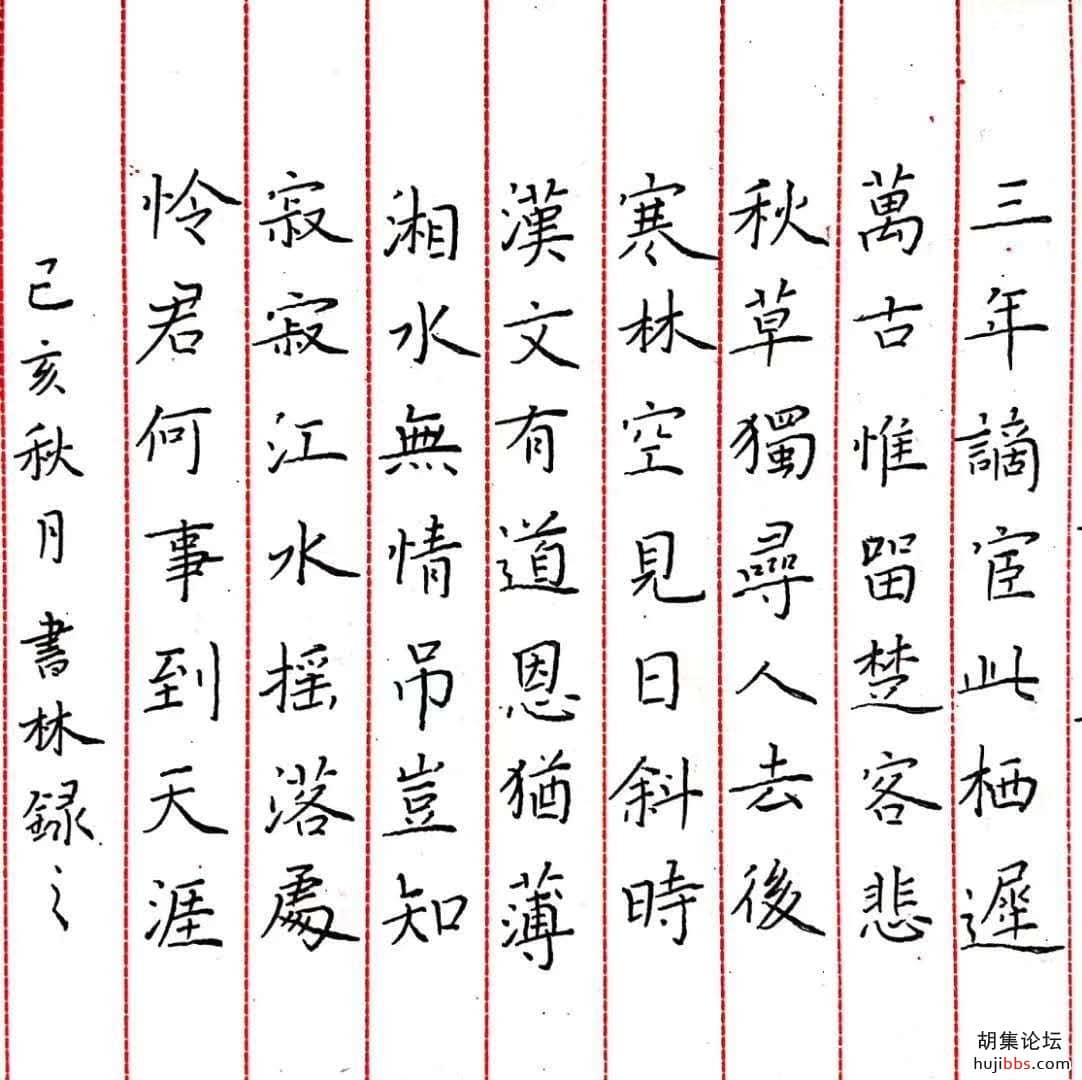 三年謫宦此栖遲
萬古惟留楚客悲
秋草獨尋人去後
寒林空見日斜時
漢文有道恩猶薄
湘水無情吊豈知
寂寂江水摇落處
怜君何事到天涯
己亥秋月書林録之
胡集论坛
hujibbs.com